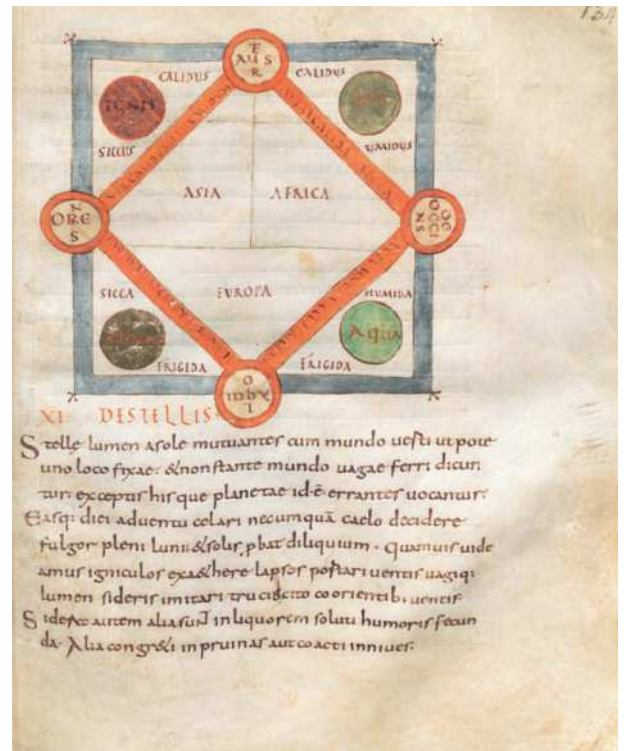 134
AUSTER
CALIDUS CALIDUS
IGNIS
SICCUS UMIDUS
ASIA AFRICA
ORIENS
OCCIDENS
SICCA EUROPA HUMIDA
AQUA
FRIGIDA FRIGIDA
XI DE STELLIS
Stelle lumen a sole mutuantes cum mundo uerti ut pote
uno loco fixae. & non stante mundo uagae ferri dicun
tur. exceptis his que planetae id ē errantes uocantur.
Easq; diei aduentu celari necumquā caelo decidere
fulgor pleni lunii & solis pbat diliquium. Quamuis uide
amus igniculos ex aethere lapsos portari uentis uagiq;
lumen sideris imitari
coorientib; uentis.
autem alia sunt in liquorem soluti humoris fecun
da. Alia congr&i in pruinas aut coacti in niues.